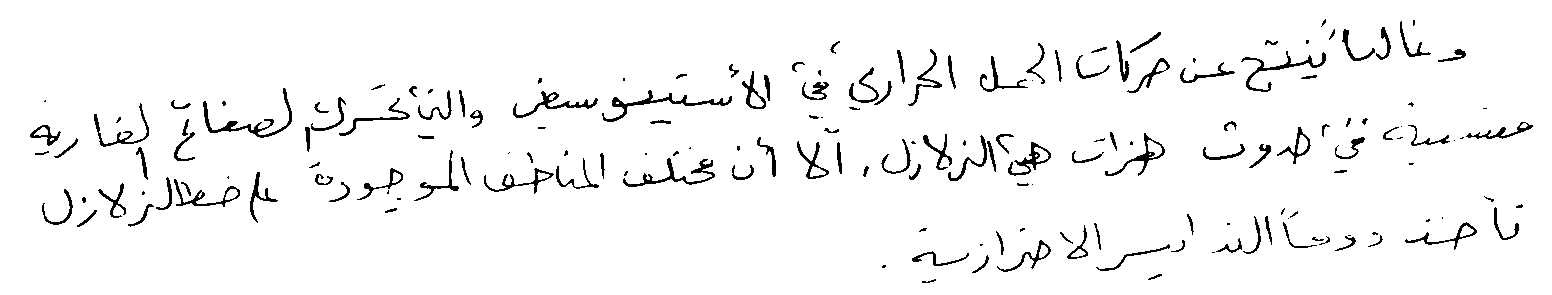 وغالباً ينتج عن حركات الحمل الحراري في الأستينوسفير والتي تحرك الصفائح القارية
متسببة في حدوث هزات هي الزلازل، ألا أن مختلف المناطق الموجودة على خط الزلازل
تأخذ دوماً التدابير الاحترازية.